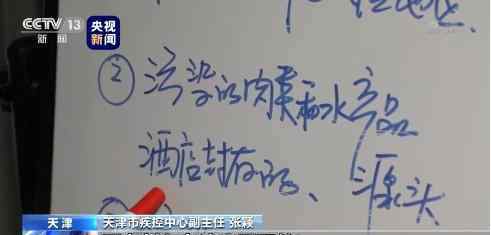 CCTV 13
新闻
央视
新闻
② 污染的肉类和水产品
酒店封存的、源头
天津 天津市疾控中心副主任 张颖